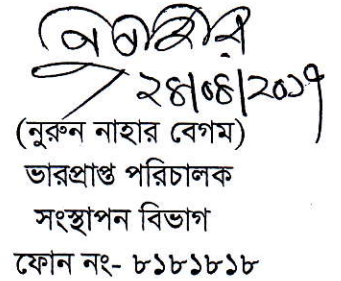 ২৪|০৪|২০১৭
(নুরুন নাহার বেগম)
ভারপ্রাপ্ত পরিচালক
সংস্থাপন বিভাগ
ফোন নং- ৮১৮১৮১৮